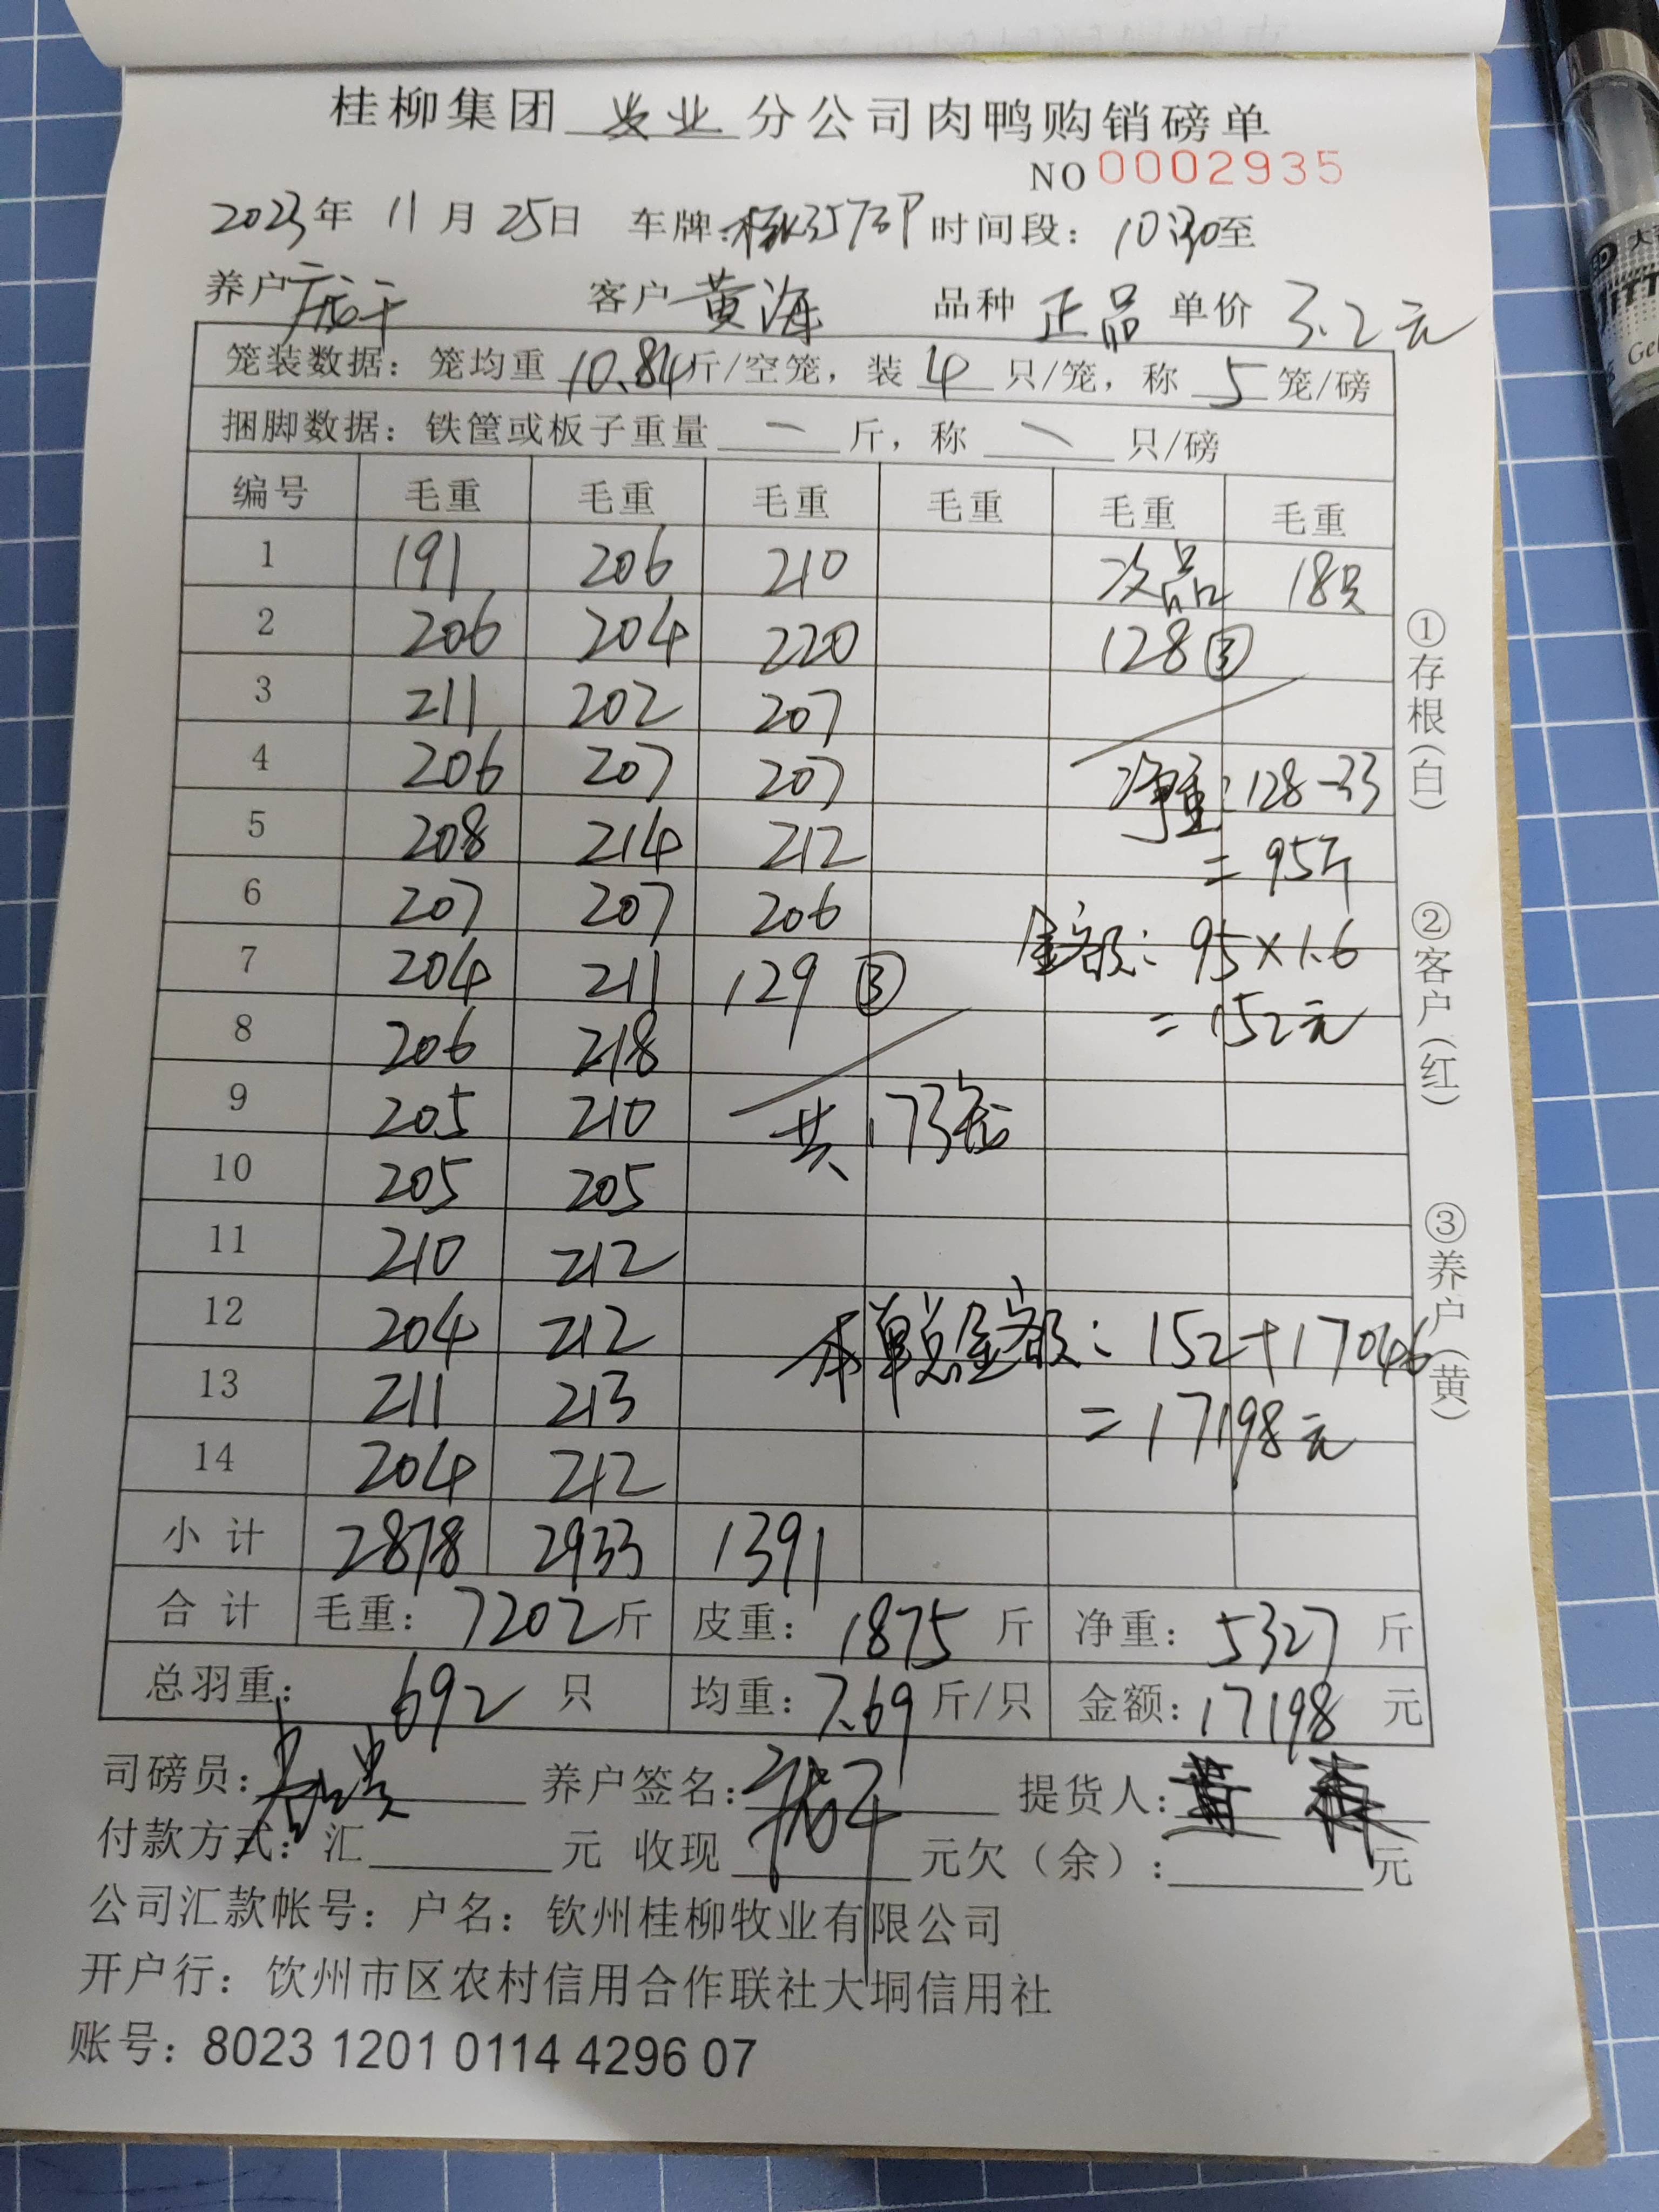 桂柳集团 业 分公司肉鸭购销磅单
NO 0002935
2023年 11月25日 车牌: 时间段: 10:30至
养户 客户 黄海 品种 正品 单价 3.2元
笼装数据: 笼均重 10.84斤/空笼, 装 4 只/笼, 称 5 笼/磅
捆脚数据: 铁筐或板子重量 — 斤, 称 — 只/磅
编号 毛重 毛重 毛重 毛重 毛重 毛重
1 191 206 210 次品 18只
2 206 204 220 128③
3 211 202 207
4 206 207 207 净重: 128-33
5 208 214 212 = 95斤
6 207 207 206 金额: 95×1.6
7 204 211 129 ③ = 152元
8 206 218
9 205 210 共173笼
10 205 205
11 210 212
12 204 212 本单总金额: 152+17046
13 211 213 = 17198元
14 204 212
小计 2878 2933 1391
合计 毛重: 7202斤 皮重: 1875 斤 净重: 5327 斤
总羽重: 692 只 均重: 7.69斤/只 金额: 17198 元
司磅员: 养户签名: 提货人:
付款方式: 汇 元 收现 元欠(余): 元
公司汇款帐号: 户名: 钦州桂柳牧业有限公司
开户行: 饮州市区农村信用合作联社大垌信用社
账号: 8023 1201 0114 4296 07
①存根(白) ②客户(红) ③养户(黄)